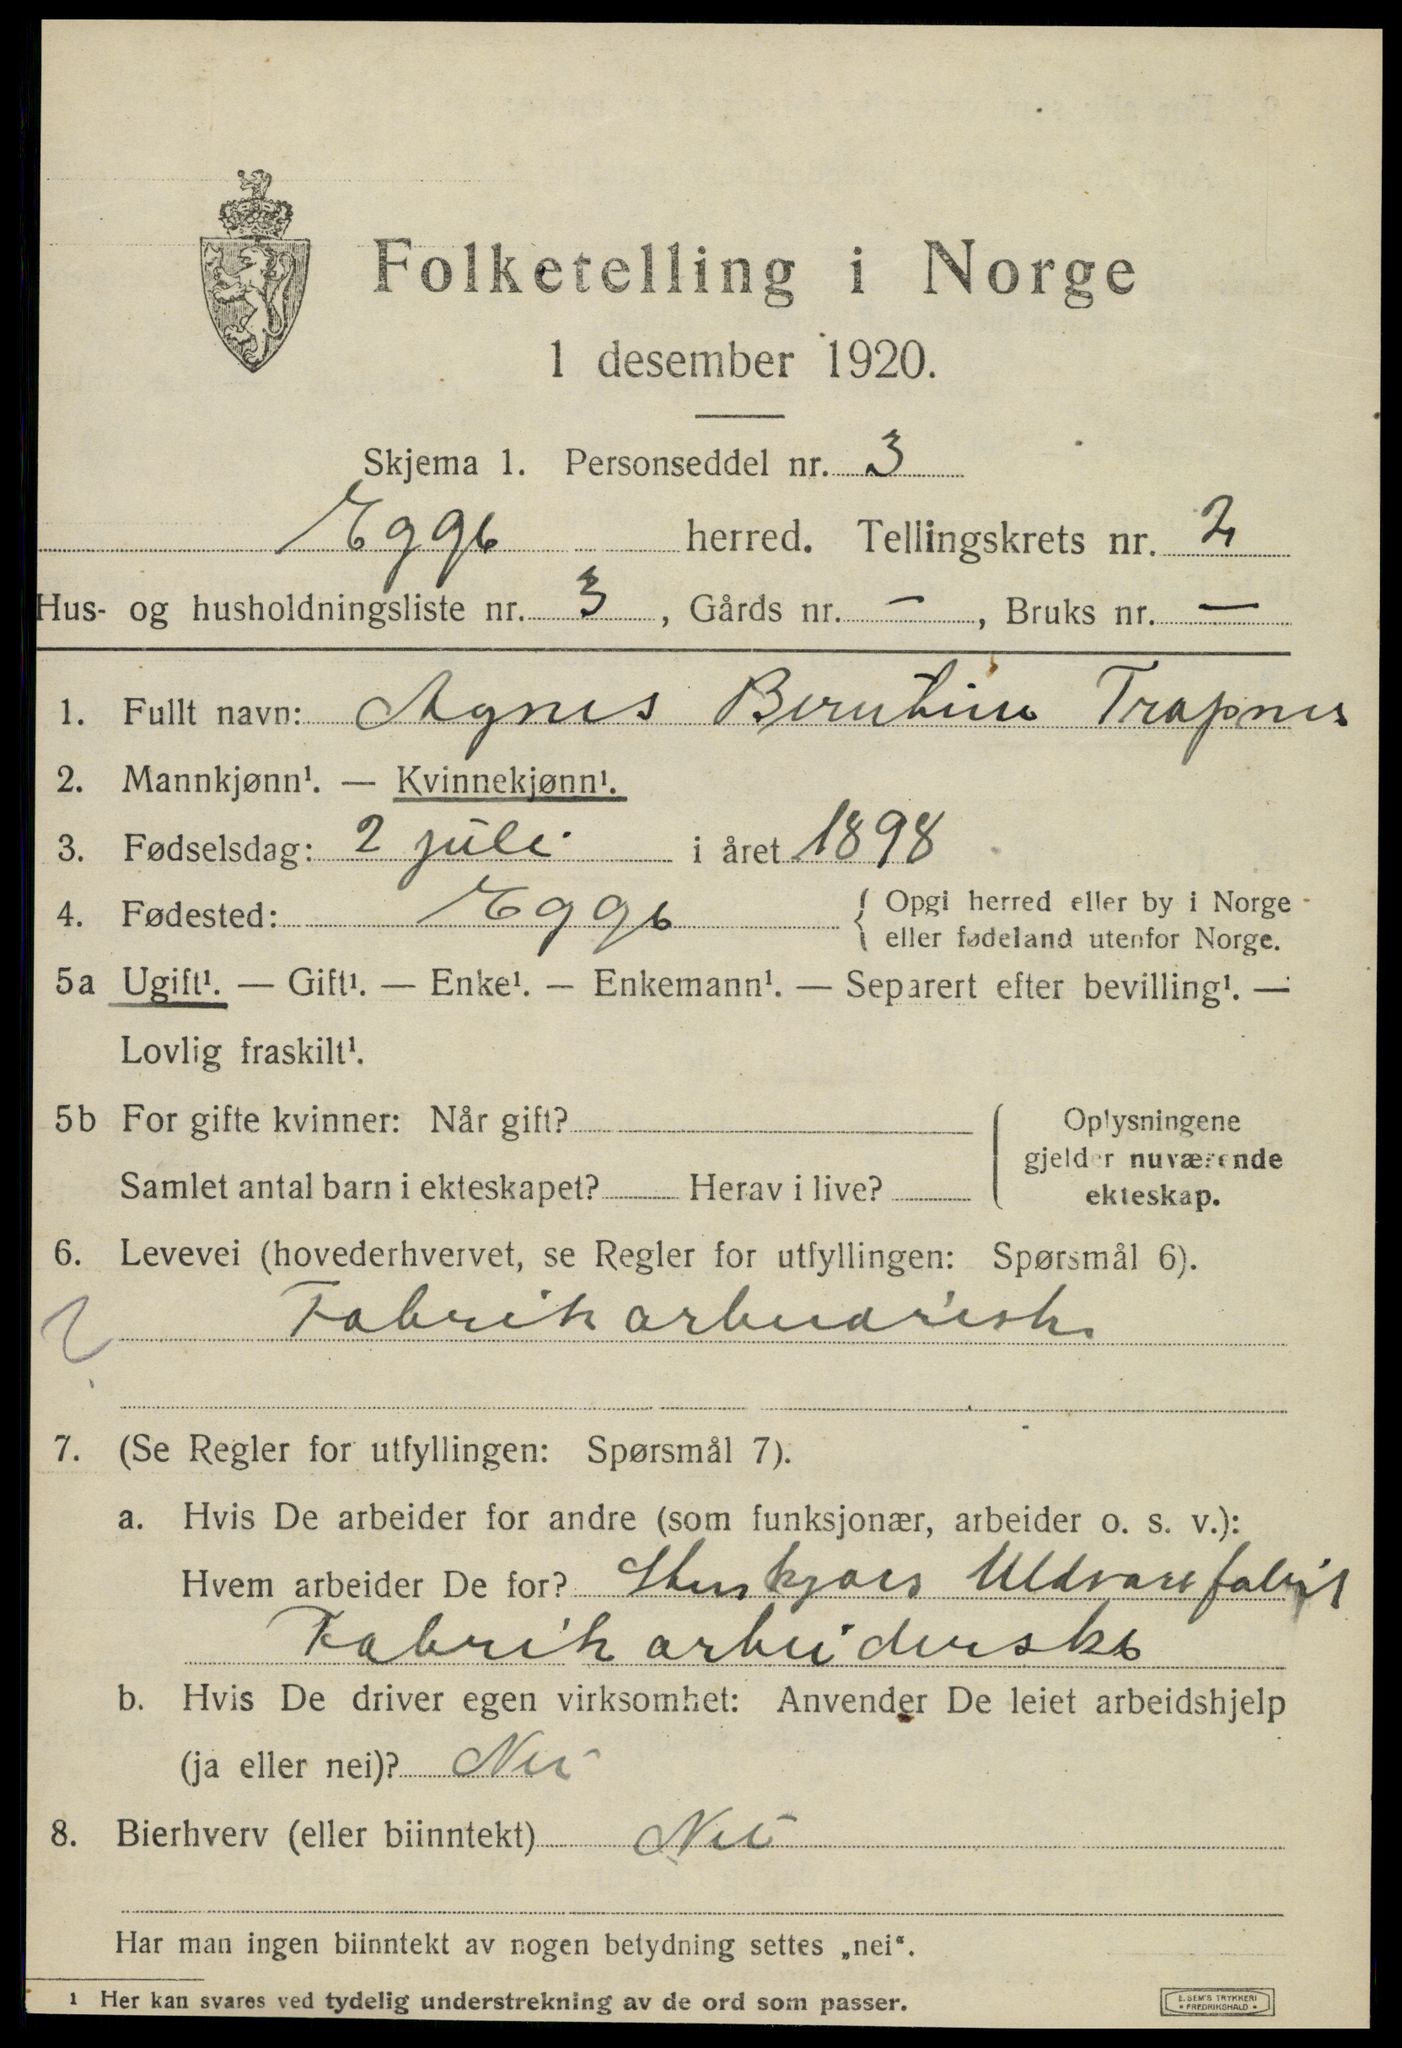 Folketelling i Norge
1 desember 1920.
Skjema 1. Personseddel nr. 3
Egge herred. Tellingskrets nr. 2
Hus- og husholdningsliste nr. 3, Gårds nr. —, Bruks nr. —
1. Fullt navn: Agnes Berntine Trapnes
2. Mannkjønn¹. — Kvinnekjønn¹.
3. Fødselsdag: 2 juli i året 1898
4. Fødested: Egge { Opgi herred eller by i Norge
eller fødeland utenfor Norge.
5a Ugift¹. — Gift¹. — Enke¹. — Enkemann¹. — Separert efter bevilling¹. —
Lovlig fraskilt¹.
5b For gifte kvinner: Når gift?
Samlet antal barn i ekteskapet? Herav i live?
Oplysningene
gjelder nuværende
ekteskap.
6. Levevei (hovederhvervet, se Regler for utfyllingen: Spørsmål 6).
Fabrikarbeiderske
7. (Se Regler for utfyllingen: Spørsmål 7).
a. Hvis De arbeider for andre (som funksjonær, arbeider o. s. v.):
Hvem arbeider De for? Stenkjærs Uldvarefabrik
Fabrikarbeiderske
b. Hvis De driver egen virksomhet: Anvender De leiet arbeidshjelp
(ja eller nei)? Nei
8. Bierhverv (eller biinntekt) Nei
Har man ingen biinntekt av nogen betydning settes „nei“.
1 Her kan svares ved tydelig understrekning av de ord som passer.
E. SEM'S TRYKKERI
• FREDRIKSHALD •